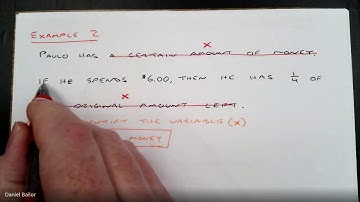 EXAMPLE 2
x
PAULO HAS A CERTAIN AMOUNT OF MONEY.
IF HE SPENDS $6.00, THEN HE HAS 1/4 OF
x
ORIGINAL AMOUNT LEFT.
THE VARIABLE (x)
MONEY
Daniel Bailor